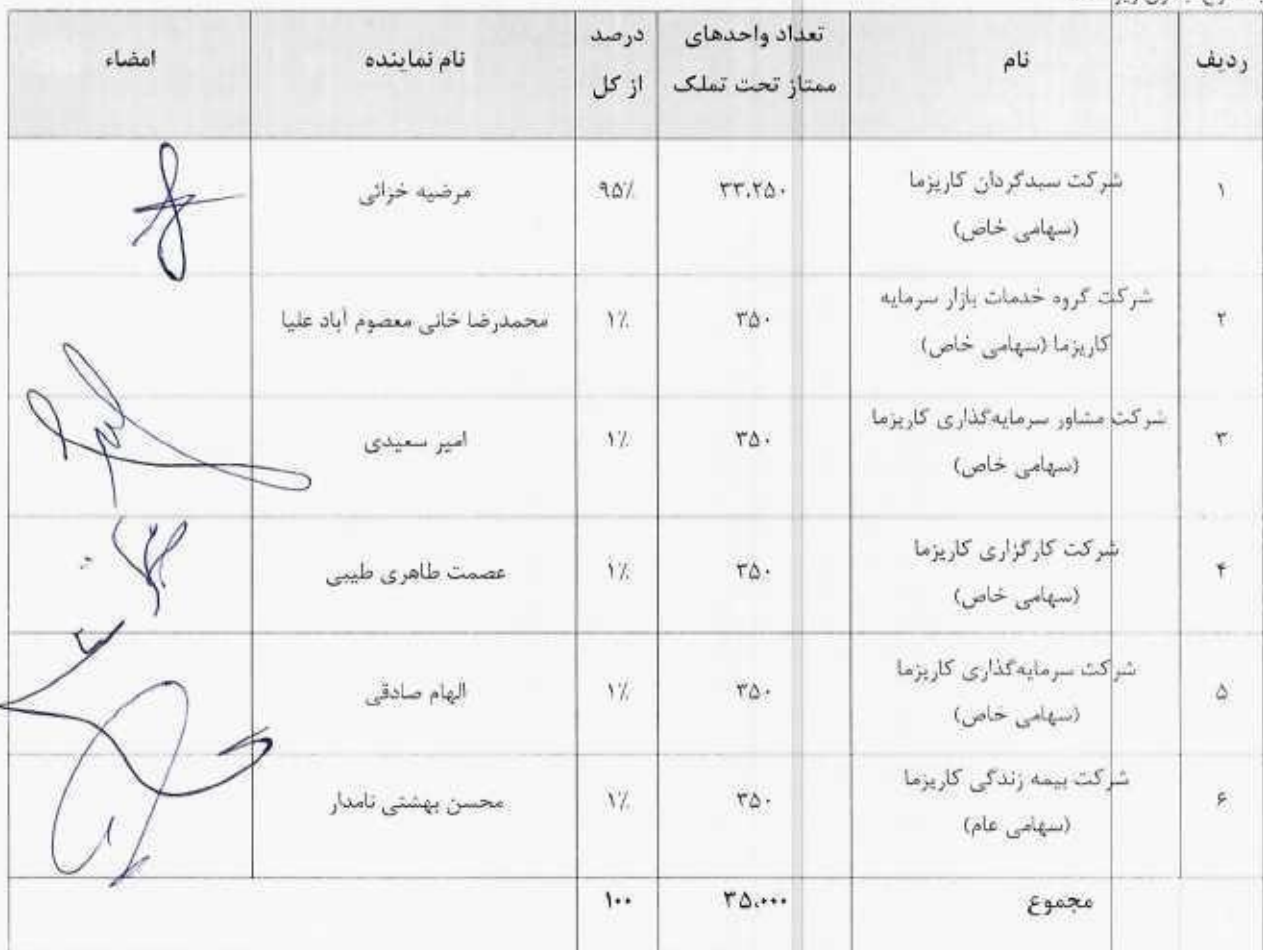 ردیف نام تعداد واحدهای ممتاز تحت تملک درصد از کل نام نماینده امضاء
۱ شرکت سبدگردان کاریزما (سهامی خاص) ۳۳,۲۵۰ ۹۵٪ مرضیه خرائی
۲ شرکت گروه خدمات بازار سرمایه کاریزما (سهامی خاص) ۳۵۰ ۱٪ محمدرضا خانی معصوم آباد علیا
۳ شرکت مشاور سرمایه‌گذاری کاریزما (سهامی خاص) ۳۵۰ ۱٪ امیر سعیدی
۴ شرکت کارگزاری کاریزما (سهامی خاص) ۳۵۰ ۱٪ عصمت طاهری طیبی
۵ شرکت سرمایه‌گذاری کاریزما (سهامی خاص) ۳۵۰ ۱٪ الهام صادقی
۶ شرکت بیمه زندگی کاریزما (سهامی عام) ۳۵۰ ۱٪ محسن بهشتی نامدار
مجموع ۳۵,۰۰۰ ۱۰۰